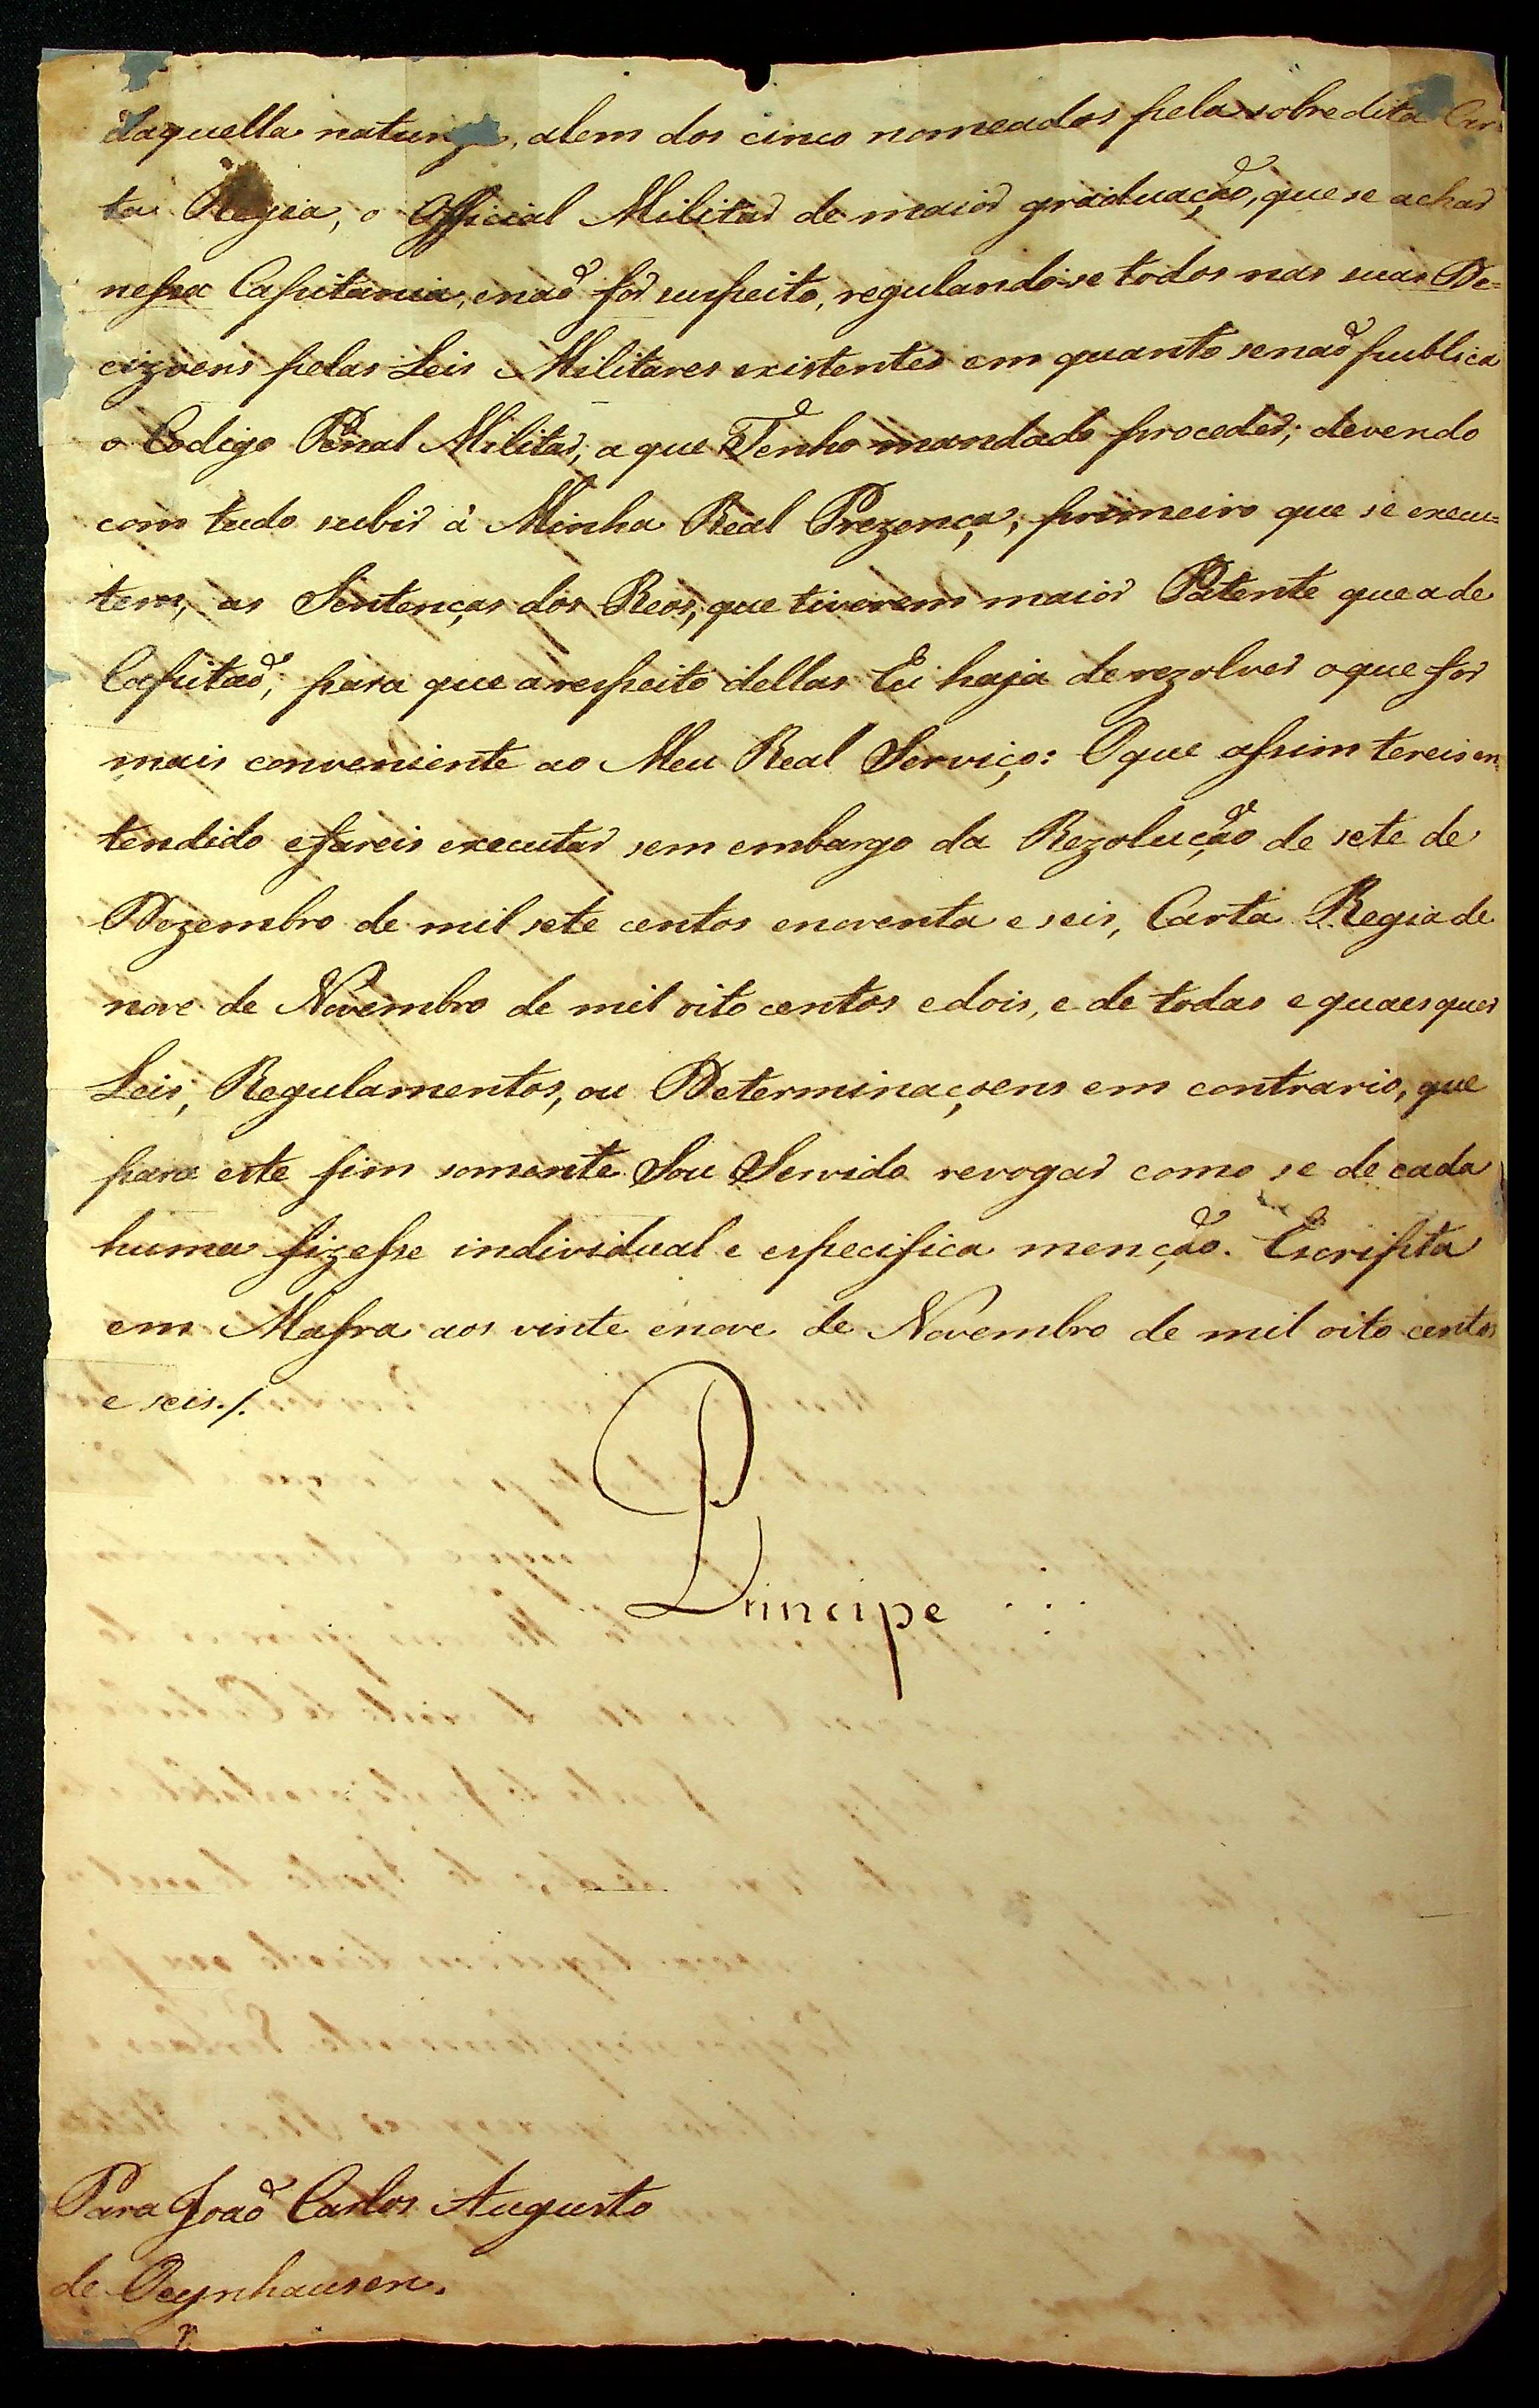 daquella natureza, alem dos cinco nomeados pela sobredita Car
ta Regia, o Official Militar de maior graduação, que se achar
nessa Capitania, enaõ for suspeito, regulando-se todos nas suas De=
cizoens pelas Leis Militares existentes em quanto senaõ publica
o Codigo Penal Militar, a que Tenho mandado proceder; devendo
com tudo subir á Minha Real Prezença, primeiro que se execu=
tem, as Sentenças dos Reos, que tiverem maior Patente que a de
Capitaõ; para que arespeito dellas Eu haja derezolver oque for
mais conveniente ao Meu Real Serviço: Oque assim tereis en
tendido efareis executar sem embargo da Rezolução de sete de
Dezembro de mil sete centos enoventa e seis, Carta Regia de
nove de Novembro de mil oito centos edois, e de todas e quaesquer
Leis, Regulamentos, ou Determinaçoens em contrario, que
para este fim somente Sou Servido revogar como se de cada
huma fizesse individual e especifica menção. Escripta
em Mafra aos vinte enove de Novembro de mil oito centos
e seis./.
Principe
Para Joaõ Carlos Augusto
de Oeynhausen.